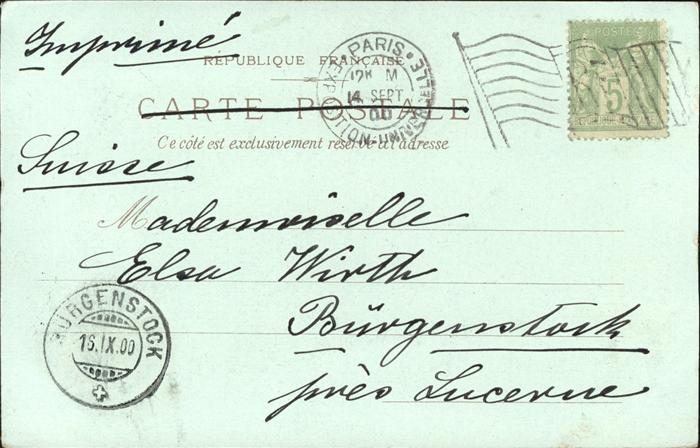 Imprimé
RÉPUBLIQUE FRANÇAISE
CARTE POSTALE
Ce côté est exclusivement réservé à l'adresse
PARIS
EXPOSITION UNIVERSELLE
12K M
14 SEPT
00
POSTES
5
Suisse
Mademoiselle
Elsa Wirth
Bürgenstock
près Lucerne
BÜRGENSTOCK
16.IX.00